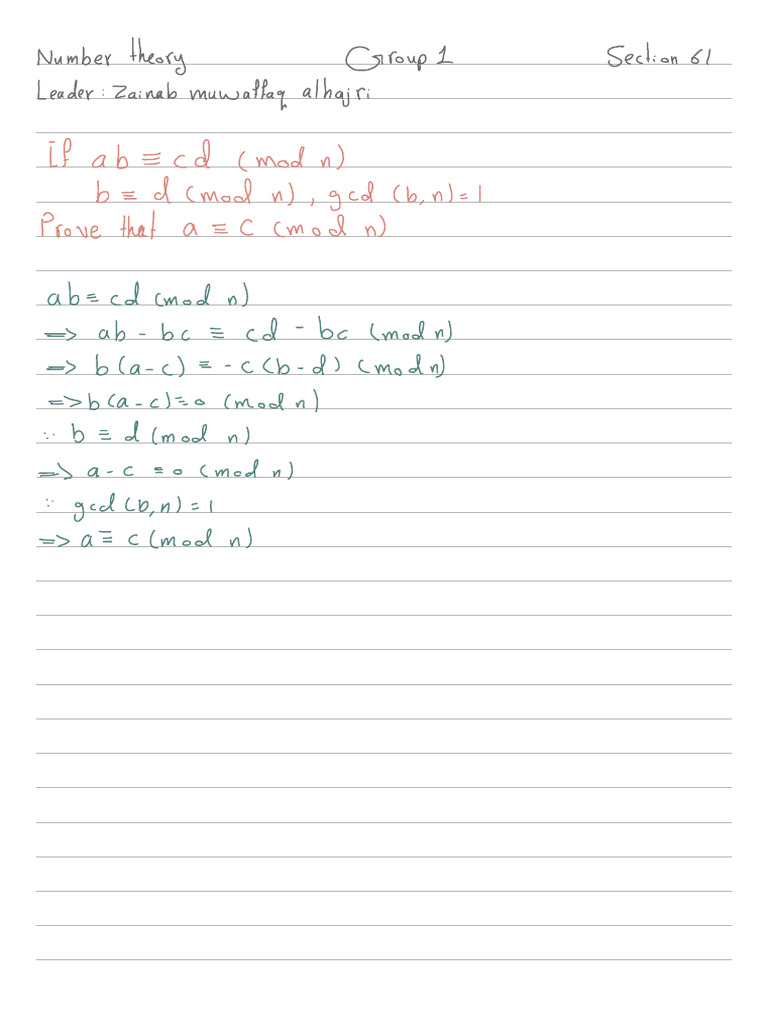 Number theory Group 1 Section 61
Leader: Zainab muwaffaq alhajri
If ab ≡ cd (mod n)
b ≡ d (mod n), gcd (b,n)=1
Prove that a ≡ c (mod n)
ab ≡ cd (mod n)
=> ab - bc ≡ cd - bc (mod n)
=> b(a-c) ≡ -c(b-d) (mod n)
=> b(a-c) ≡ 0 (mod n)
∵ b ≡ d (mod n)
=> a-c ≡ 0 (mod n)
∵ gcd (b,n) = 1
=> a ≡ c (mod n)